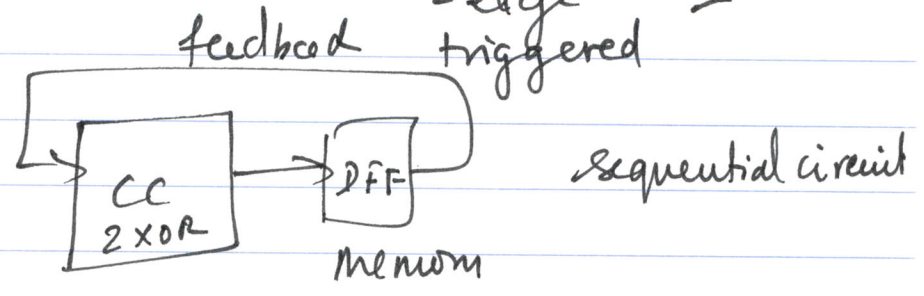 edge
feedback triggered
CC
2 XOR
DFF
sequential circuit
memory